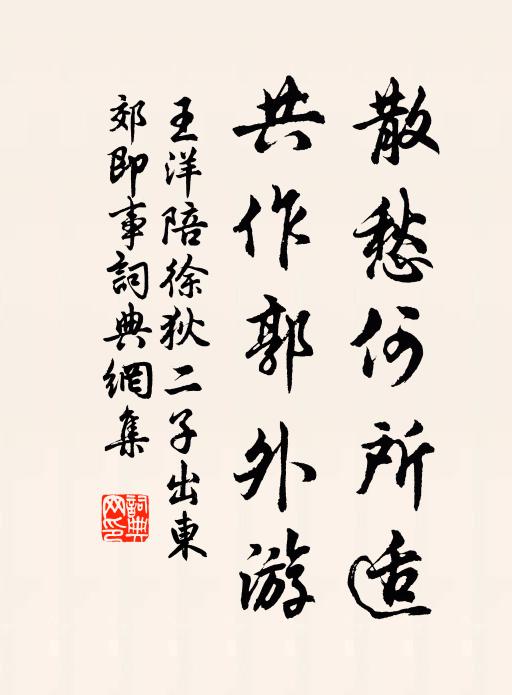 散愁何所适
共作郭外游
王洋陪徐狄二子出東
郊即事詞典網集
詞典網印